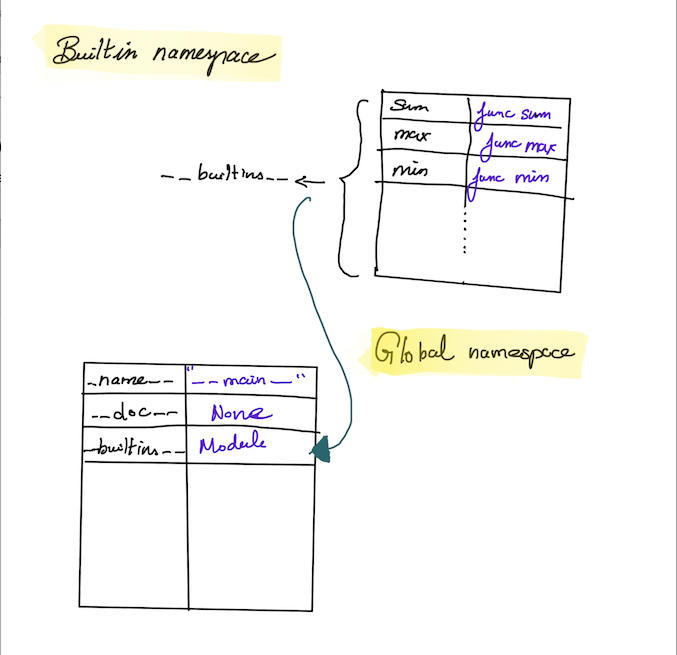 Builtin namespace
sum func sum
max func max
__builtins__ min func min
Global namespace
_name__ "__main__"
__doc__ None
__builtins__ Module